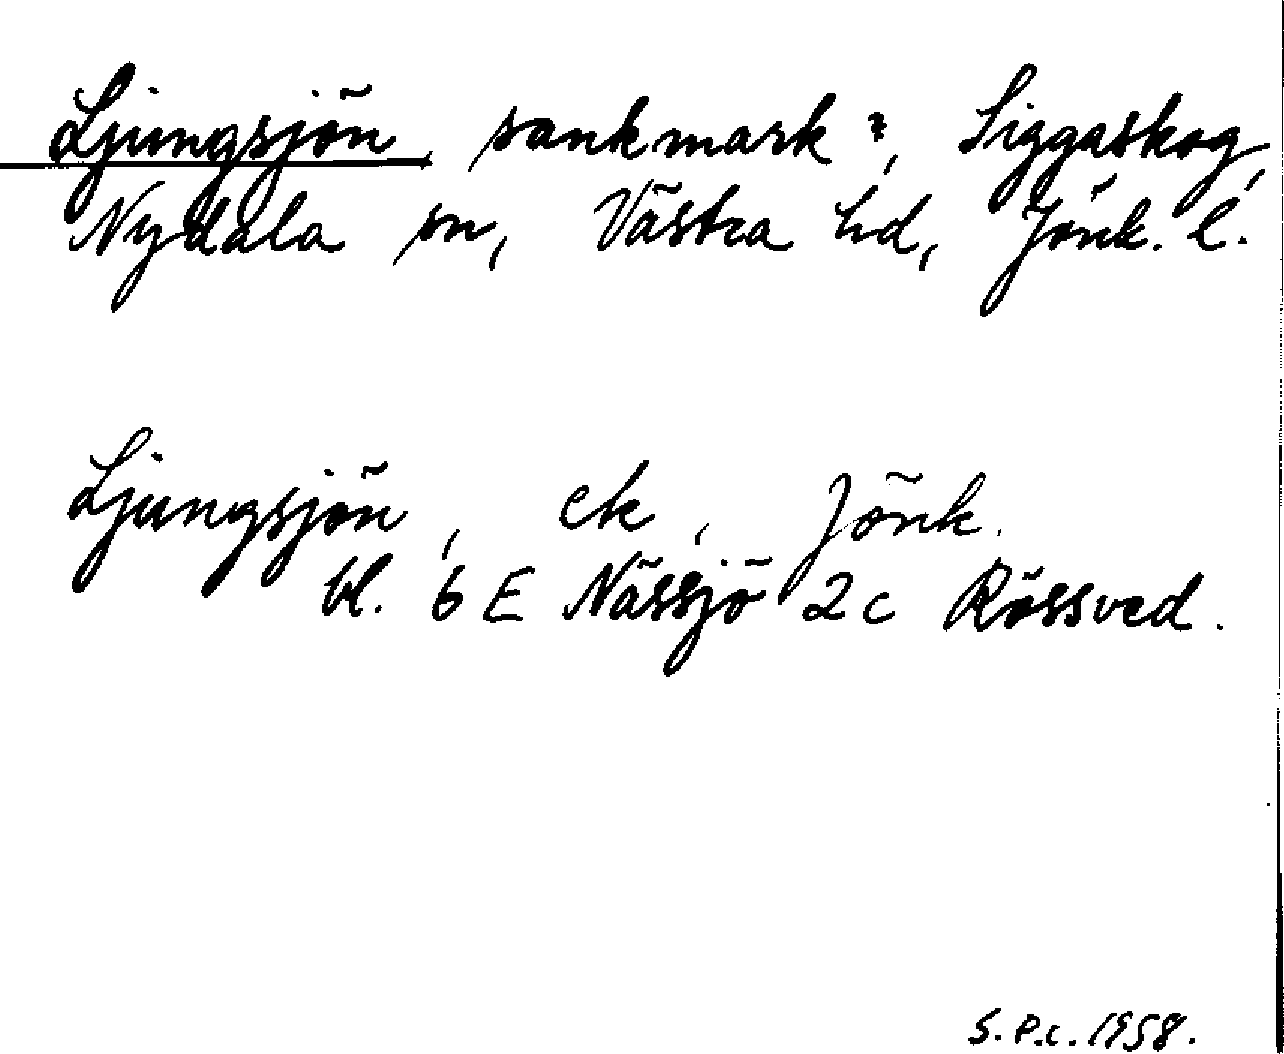 Ljungsjön, sankmark?, Siggaskog,
Nydala sn, Västra hd, Jönk. l.
Ljungsjön, ek, Jönk.
bl. 6 E Nässjö 2 c Rössved.
S.P.C. 1958.